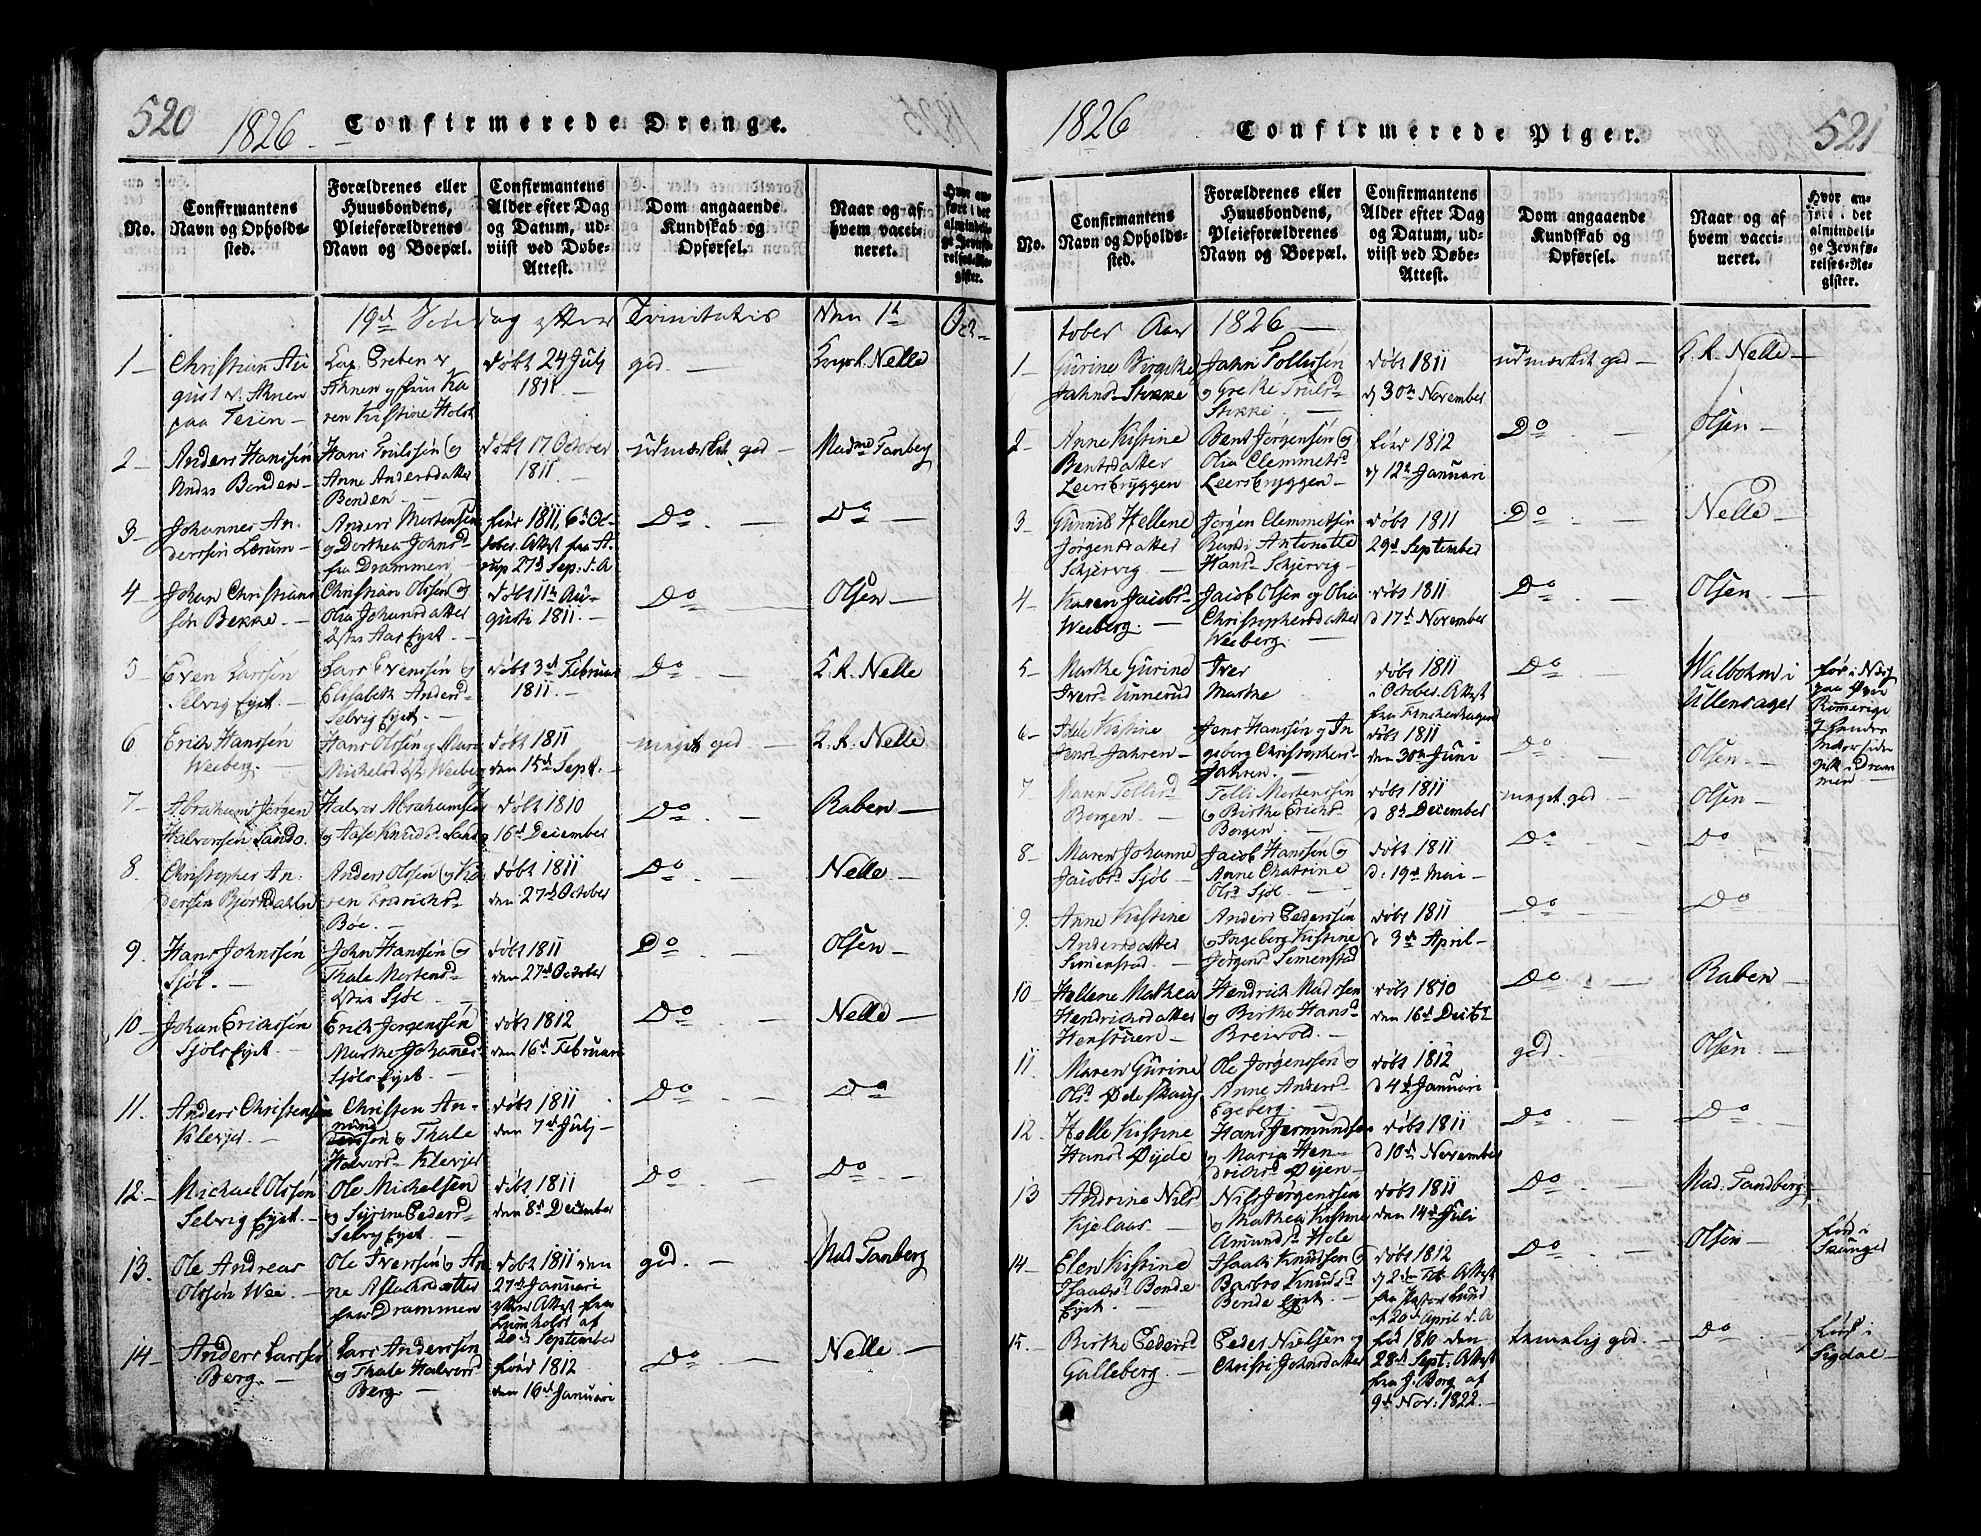 520
1826. Confirmerede Drenge.
No.
Confirmantens
Navn og Opholds-
sted.
Forældrenes eller
Huusbondens,
Pleieforældrenes
Navn og Boepæl.
Confirmantens
Alder efter Dag
og Datum, ud-
viist ved Døbe-
Attest.
Dom angaaende
Kundskab og
Opførsel.
Naar og af
hvem vacci-
neret.
Hvor an-
ført i det
almindeli-
ge Jevnfø-
relses-Re-
gister.
19de Søndag efter Trinitatis den 1te Oct-
1
Christian Au
gust v. Aknen
paa Teien
Cap. Preben v
Aknen og Frue Ka
ren Kistine Holst
døbt 24 July
1811.
god
Nelle
2
Anders Hanssøn
Bonden
Hans Truilssøn og
Anne Andersdatter
Bonden
døbt 17 October
1811.
udmærket god
Madme Tanberg
3
Johannes An
derssøn Lærum
Anders Mortensen
og Dorthea Johnsd
fra Drammen
født 1811, 6te Oc-
tober. Attest fra
27de Sep: d. A
Do
Do
4
Johan Christians
søn Bekke
Christian Olssøn og
Olia Johansdatter
Aas Eyet
døbt 11te Au-
gusti 1811.
Do
Olsen
5
Even Larssøn
Selvig Eyet
Lars Evenssøn og
Elisabeth Andersd
Selvig Eyet
døbt 3de Februar
1811.
Do
L. R. Nelle
6
Erich Hanssøn
Weeberg.
Hans Olssøn og Mare
Michelsd Weeberg
døbt 1811
den 15de Sept.
meget god
L. R. Nelle
7
Abraham Jørgen
Halvorssøn Sando.
Halvor Abrahamsøn
og Aase Knudsd. Sando
døbt 1810
16de December
Do
Raben
8
Christopher An
derssøn Bjørndalen
Anders Olssøn og Ka
ren Fredrichsd
Bøe.
døbt 1811
den 27de October
Do
Nelle
9.
Hans Johnssøn
Sjøl.
John Hanssøn og
Thale Mortensd
Sjøl
døbt 1811
den 27de October
Do
Olsen
10
Johan Erichssøn
Sjøls Eyet
Erich Jørgenssøn
Marthe Johannesd
Sjøls Eyet.
døbt 1812
den 16de Februari
Do
Nelle
11.
Anders Christensen
Klevjer
Christen An-
mund
derssøn og Thale
Halvorsd Klevjer
døbt 1811
den 7de July
Do
Do
12.
Michael Olssøn
Selvig Eyet.
Ole Michelsen
og Siirine Pedersd
Selvig Eyet
døbt 1811
den 8de December
Do
Do
13.
Ole Andreas
Olssøn Wei
Ole Iverssøn og An
ne Aslachsdatter
fra Drammen
døbt 1811 den
27de Januari
efter Attest fra
Lumholtz af
20de September
god
Mad Tanberg
14
Anders Larssøn
Berg.
Lars Anderssøn
og Thale Halvorsd
Berg.
født 1812
den 16de Januari
Do
Nelle
1826 Confirmerede Piger. 521
No.
Confirmantens
Navn og Opholds-
sted.
Forældrenes eller
Huusbondens,
Pleieforældrenes
Navn og Boepæl.
Confirmantens
Alder efter Dag
og Datum, ud-
viist ved Døbe-
Attest.
Dom angaaende
Kundskab og
Opførsel.
Naar og af
hvem vacci-
neret.
Hvor an-
ført i det
almindeli-
ge Jevnfø-
relses-Re-
gister.
tober Aar 1826
1
Gurine Birgithe
Jahnsd Stikke
Jahn Tollissøn
og Grethe Truilsd
Stikke
døbt 1811
d 30te November
udmærket god
L. R. Nelle
2
Anne Kistine
Bentsdatter
Leersbryggen
Bent Jørgensøn og
Olia Clemmetsd
Leersbryggen
født 1812
d 12te Januari
Do
Olsen
3
Gunnil Hellene
Jørgensdatter
Schjervig
Jørgen Clemmetsøn
Randi Antonette
Hansd Schjervig
døbt 1811
29de September
Do
Nelle
4
Karen Jacobsd
Weeberg.
Jacob Olsen og Olia
Christophersdatter
Weeberg.
døbt 1811
d 17de November
Do
Olsen
5
Marthe Gurine
Iversd Unnerud
Iver
Marthe
døbt 1811
i October. Attest
fra Finckenhagen
Do
Walbohm i
Ullensager
før i Næs
paa Øvre
Rommerige
6
Idde Kistine
Jensd Jahren
Jens Hanssøn og In
geberg Christophersd
Jahren.
døbt 1811
den 30te Juni
Do
Olsen
7
Maren Tollisd
Borgen
Tolli Mortenssøn
og Birthe Erichsd
Borgen
døbt 1811
d 8de December
meget god
Olsen
8
Maren Johanne
Jacobsd Sjøl
Jacob Hanssøn og
Anne Chatrine
Olsd Sjøl
døbt 1811
d. 19de Mai
Do
Do
9.
Anne Kistine
Andersdatter
Simenstad
Anders Pederssøn
og Ingeberg Kistine
Jørgensd Simenstad
døbt 1811
d 3de April
Do
Do
10
Hellene Mathea
Hendrichsdatter
Henrich Madssøn
og Birthe Hansd
Breivod.
døbt 1810
den 16de Decbr
Do
Raben
11.
Maren Gurine
Olsd Ødeskaug
Ole Jørgenssøn og
Anne Andersd
Egeberg.
døbt 1812
d 4de Januari
god
Olsen
12.
Helle Kistine
Hansd Øyde
Hans Jermundsen
og Maria Hen-
drichsd Øyen
døbt 1811
d 10de November
Do
Do
13
Andrine Nilsd
Kjelaas
Nils Jørgenssøn
og Mathea Kistine
Amundsd Hole
døbt 1811
den 14de Juli
Do
Mad. Tandberg
14
Elen Kistine
Isaachsd Bonde
Eyet
Isaach Knudsen og
Barbro Knudsd
Bonde Eyet
døbt 1812
d 2den Feb. Attest
fra Pastor Lund
af 20de April d. A
Do
Olsen
født i
Spanger
15.
Birthe Pedersd
Galleberg
Peder Nielsen og
Christi Johnsdatter
født 1810 den
28de Sept. Attest
fra J. Borg af
9de Nov: 1822.
temmelig god.
Do
født i
Sigdal